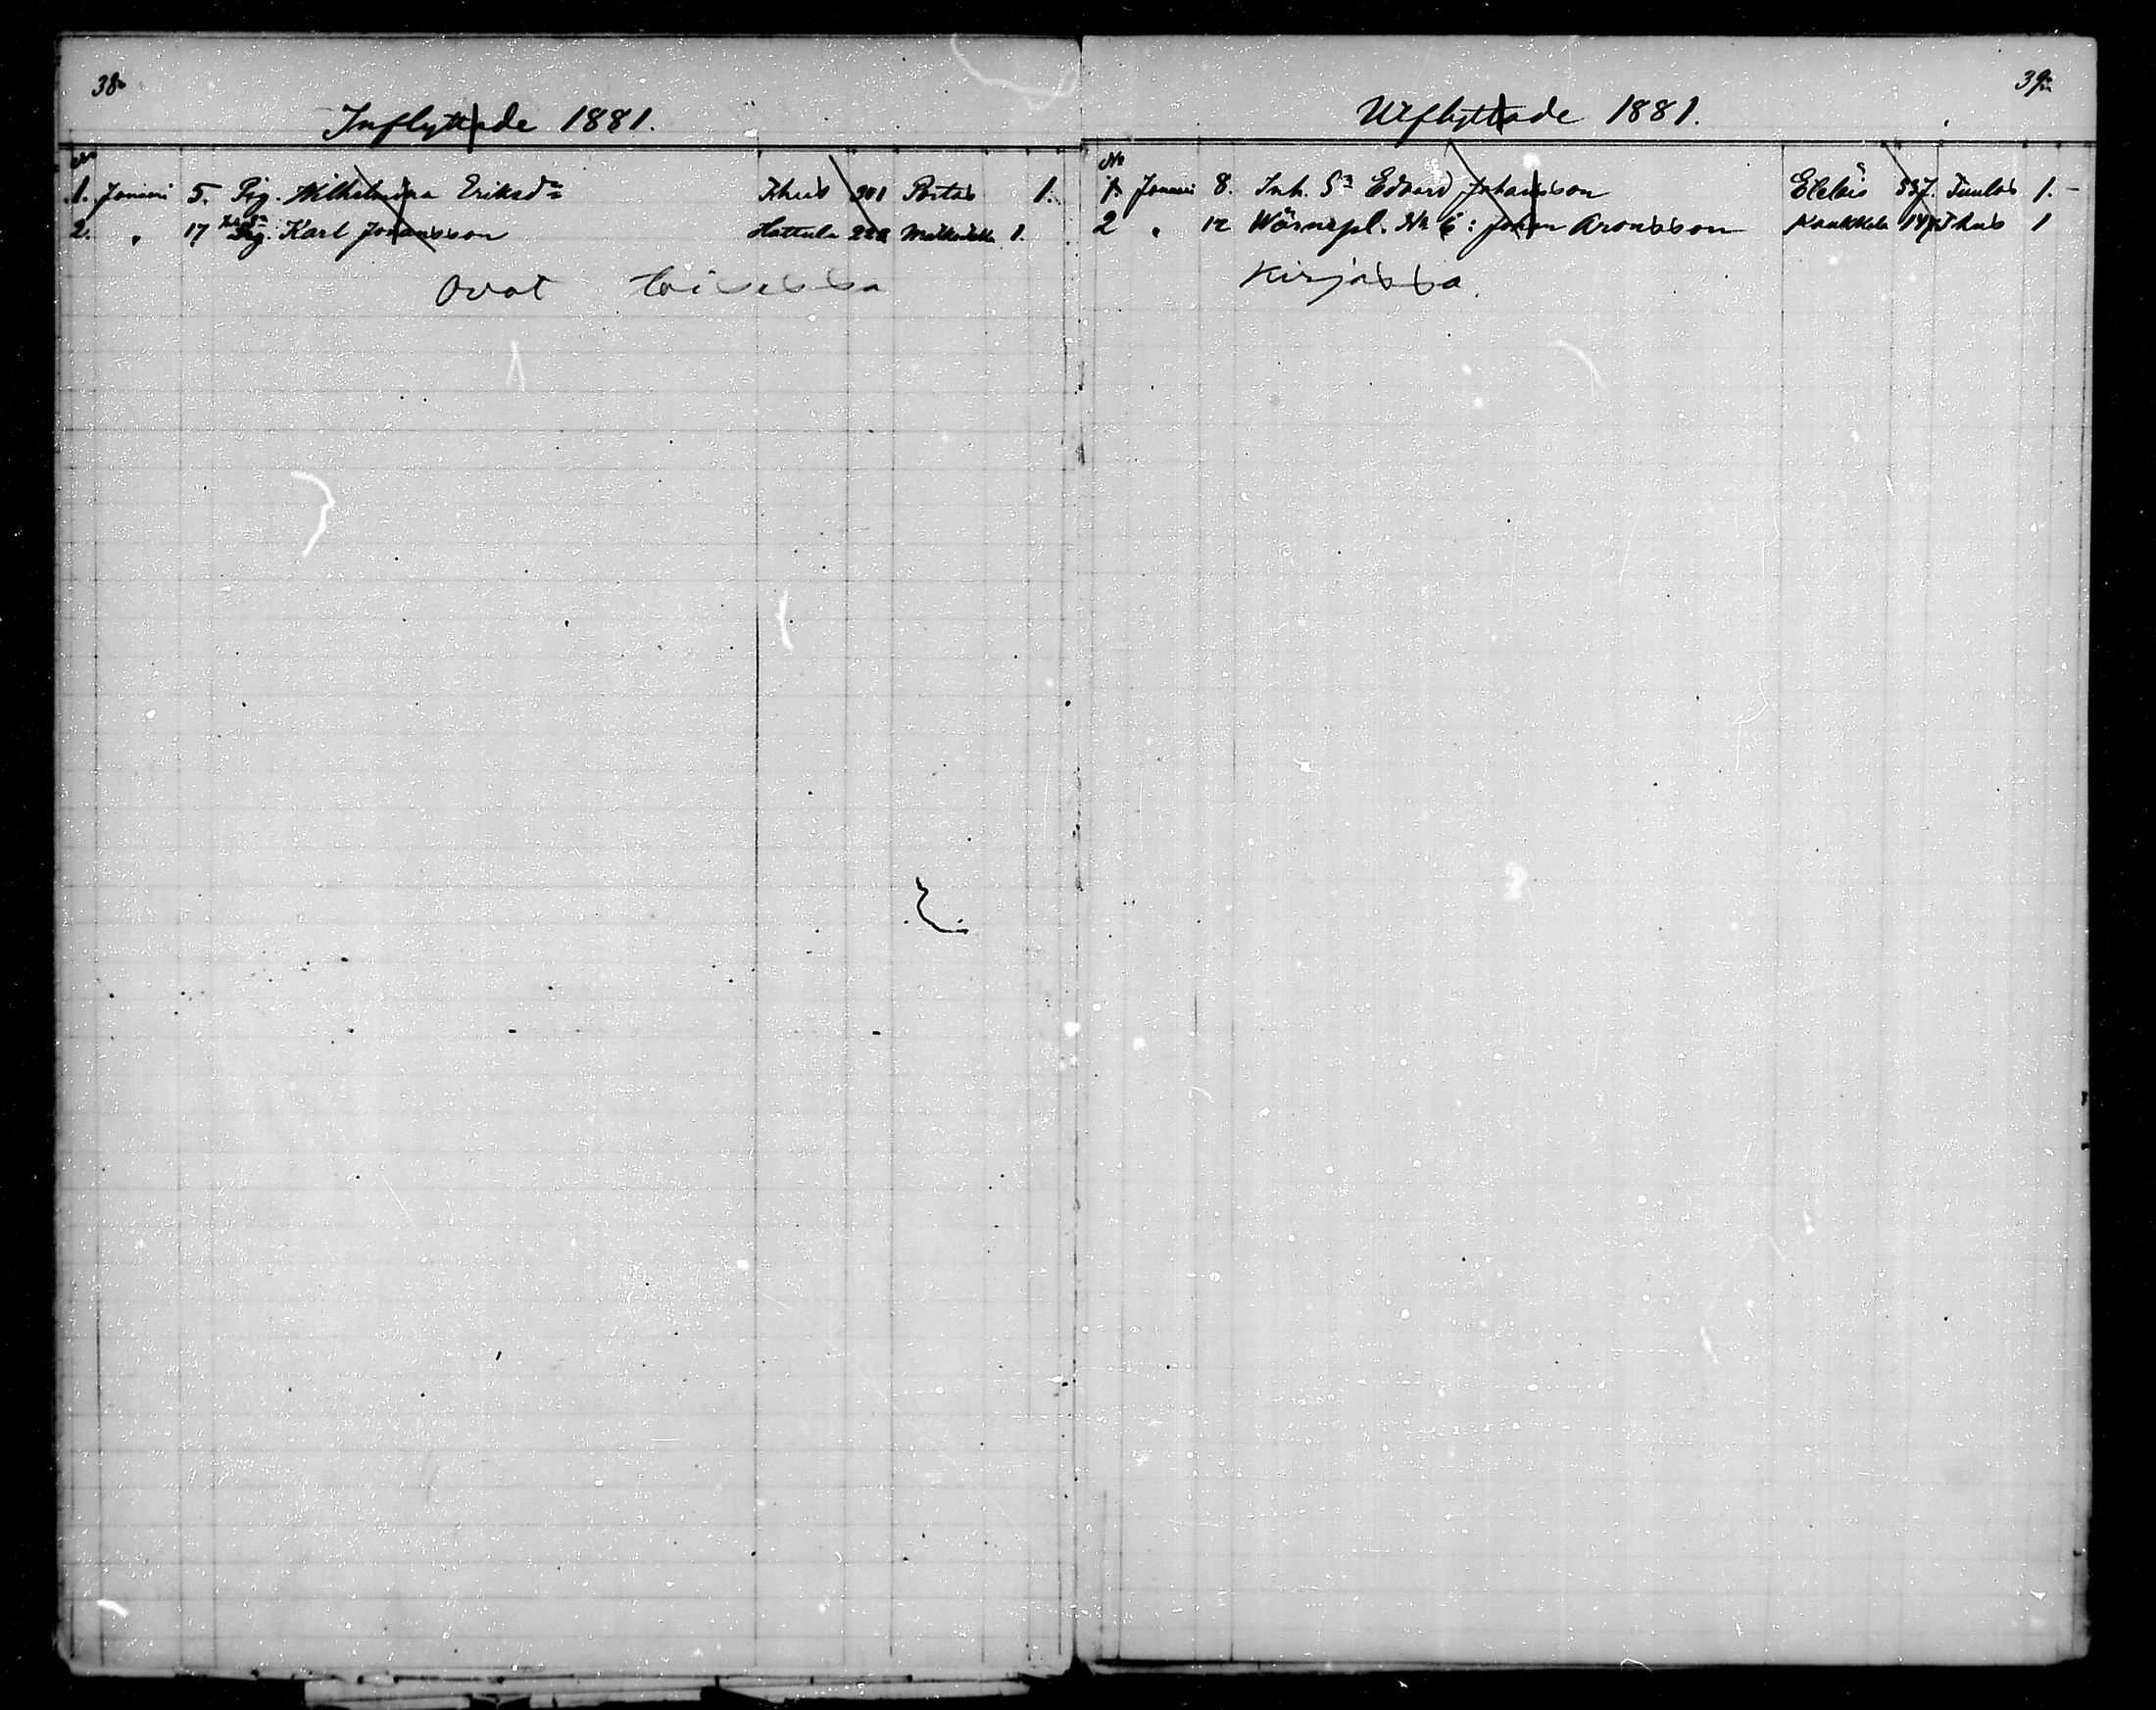 38.
Inflyttade 1881.
No
1. Januari 5. Pig. Wilhelmina Eriksdr 301 Portas 1.
2. " 17 Karl Johansson Hattula 220 1.
Ovat toisessa
39.
Utflyttade 1881.
No
1. Januari 8. Inh. Sn Edvard Johansson Eteläis 537. Tuulos 1.
2 " 12 Wärnspl. No 6: Johan Aronsson Kankkala 147 1
Kirjassa.